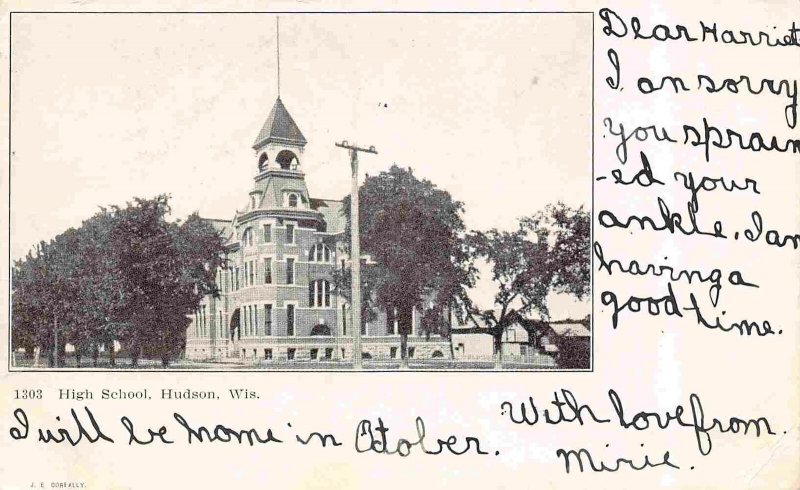 Dear Harriet
I on sorry
you sprain
-ed your
ankle. I am
having a
good time.
1303 High School, Hudson, Wis.
I will be home in October.
With love from.
Mirie.